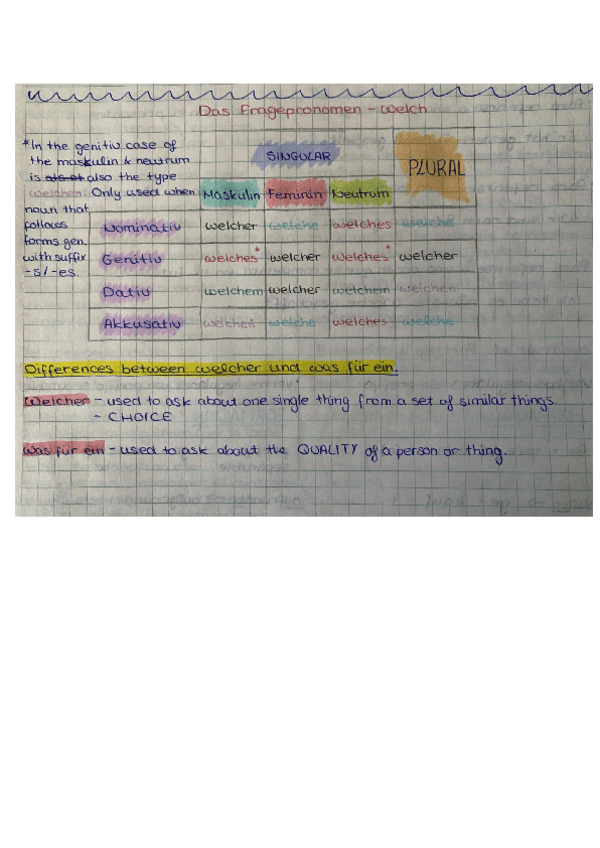 Das Fragepronomen - welch
*In the genitiv case of
the maskulin & neutrum
is also the type
welchen. Only used when
noun that
follows
forms gen.
with suffix
-s/-es.
SINGULAR PLURAL
Maskulin Feminin Neutrum
Nominativ welcher welche welches welche
Genitiv welches* welcher welches* welcher
Dativ welchem welcher welchem welchen
Akkusativ welchen welche welches welche
Differences between welcher und was für ein.
Welcher - used to ask about one single thing from a set of similar things.
- CHOICE
Was für ein - used to ask about the QUALITY of a person or thing.